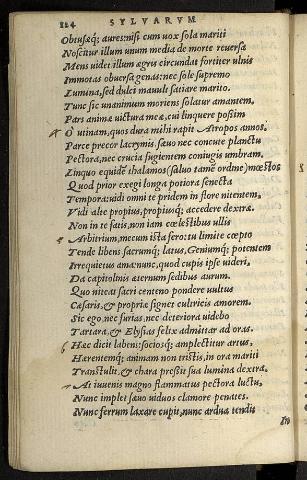 124 SYLVARVM
Obtusæq; aures: nisi cum uox sola mariti
Noscitur illum unum media de morte reuersa
Mens uidet illum ægris circundat fortiter ulnis
Immotas obuersa genas: nec sole supremo
Lumina, sed dulci mauult satiare marito.
Tunc sic unanimum moriens solatur amantem.
Pars animæ uictura meæ, cui linquere possim
O utinam, quos dura mihi rapit Atropos annos.
Parce precor lacrymis, sæuo nec concute planctu
Pectora, nec crucia fugientem coniugis umbram.
Linquo equidē thalamos (saluo tamē ordine) mœstos
Quod prior exegi longa potiora senecta
Tempora: uidi omni te pridem in flore nitentem.
Vidi altæ propius, propiusq; accedere dextræ.
Non in te fatis, non iam cœlestibus ullis
Arbitrium, mecum ista fero: tu limite cœpto
Tende libens sacrumq; latus, Geniumq; potentem
Irrequietus ama: nunc, quod cupis ipse uideri,
Da capitolinis æternum sedibus aurum.
Quo niteat sacri centeno pondere uultus
Cæsaris, & propriæ signet cultricis amorem.
Sic ego, nec furias, nec deteriora uidebo
Tartara, & Elysias felix admittar ad oras.
6 Hæc dicit labens: sociosq; amplectitur artus,
Hærentemq; animam non tristis, in ora mariti
Transtulit, & chara pressit sua lumina dextra.
At iuuenis magno flammatus pectora luctu,
Nunc implet sæuo uiduos clamore penates.
Nunc ferrum laxare cupit, nunc ardua tendit
In